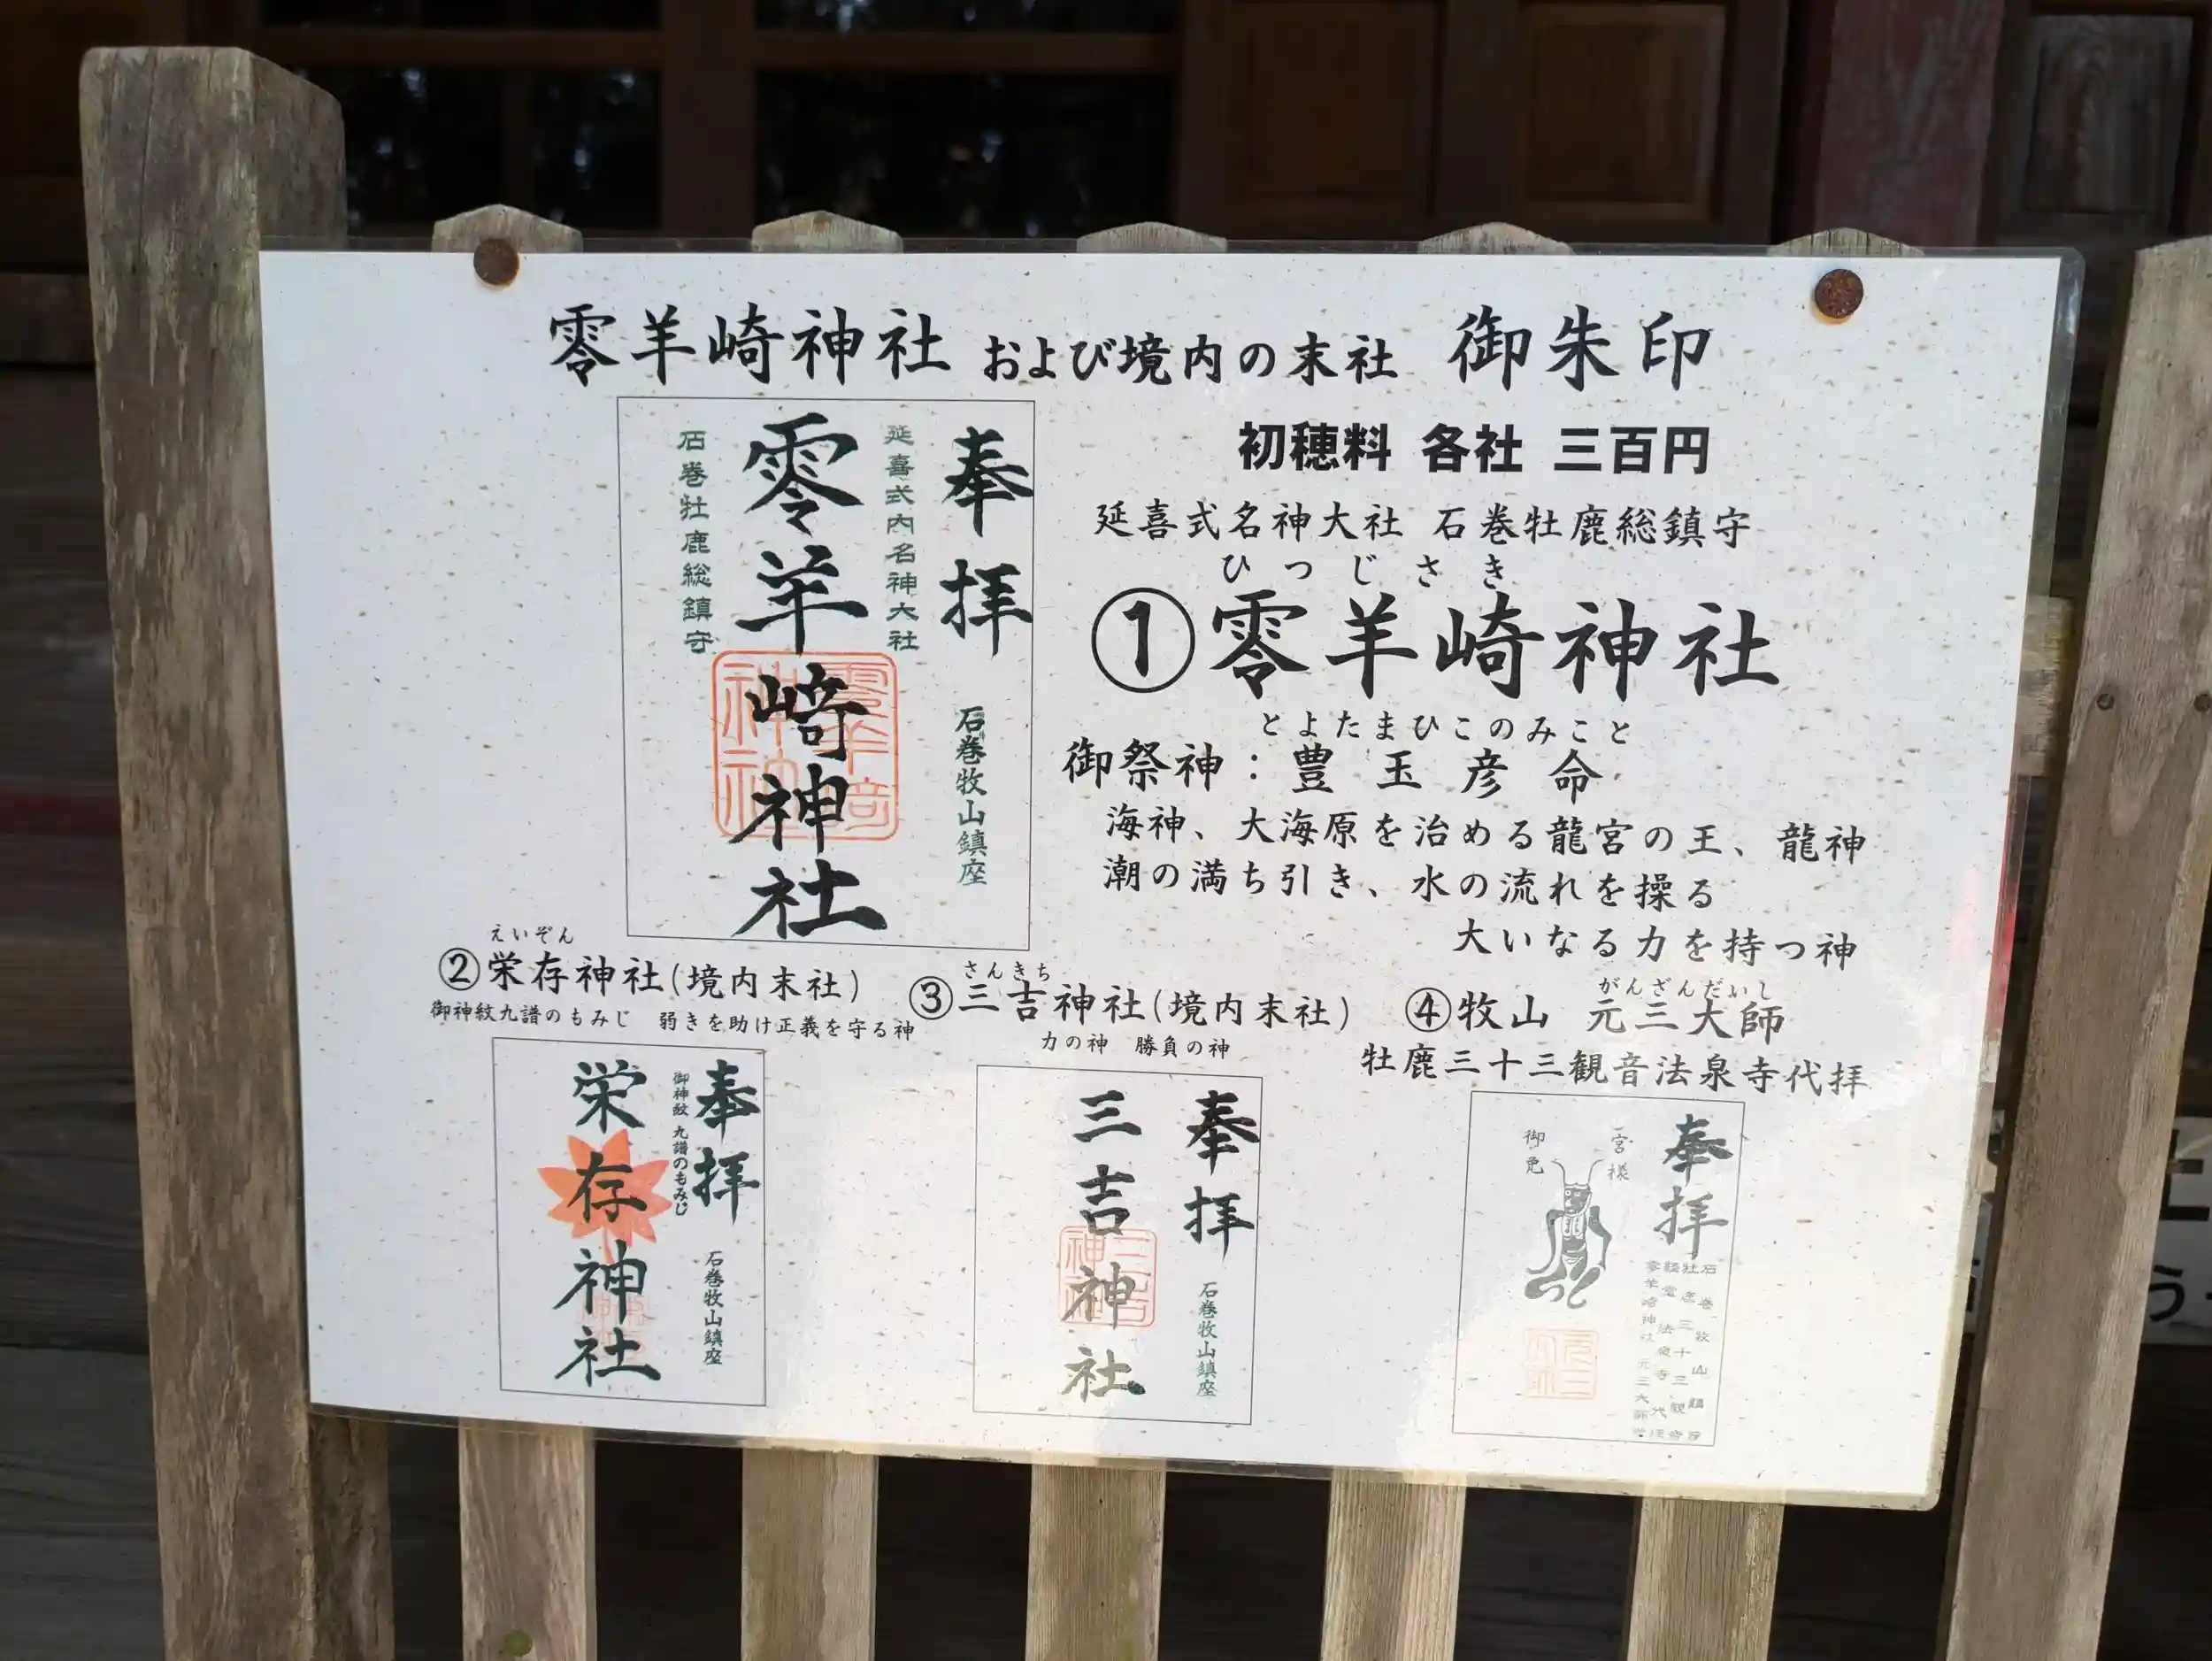 零羊崎神社 および境内の末社 御朱印
初穂料 各社 三百円
延喜式名神大社 石巻牡鹿総鎮守
ひつじさき
①零羊崎神社
とよたまひこのみこと
御祭神：豊玉彦命
海神、大海原を治める龍宮の王、龍神
潮の満ち引き、水の流れを操る
大いなる力を持つ神
奉拝
石巻牧山鎮座
延喜式内名神大社
零羊﨑神社
石巻牡鹿総鎮守
えいぞん
②栄存神社(境内末社)
御神紋九譜のもみじ 弱きを助け正義を守る神
奉拝
石巻牧山鎮座
御神紋 九譜のもみじ
栄存神社
さんきち
③三吉神社(境内末社)
力の神 勝負の神
奉拝
石巻牧山鎮座
三吉神社
がんざんだいし
④牧山 元三大師
牡鹿三十三観音法泉寺代拝
奉拝
宮様
御免
う